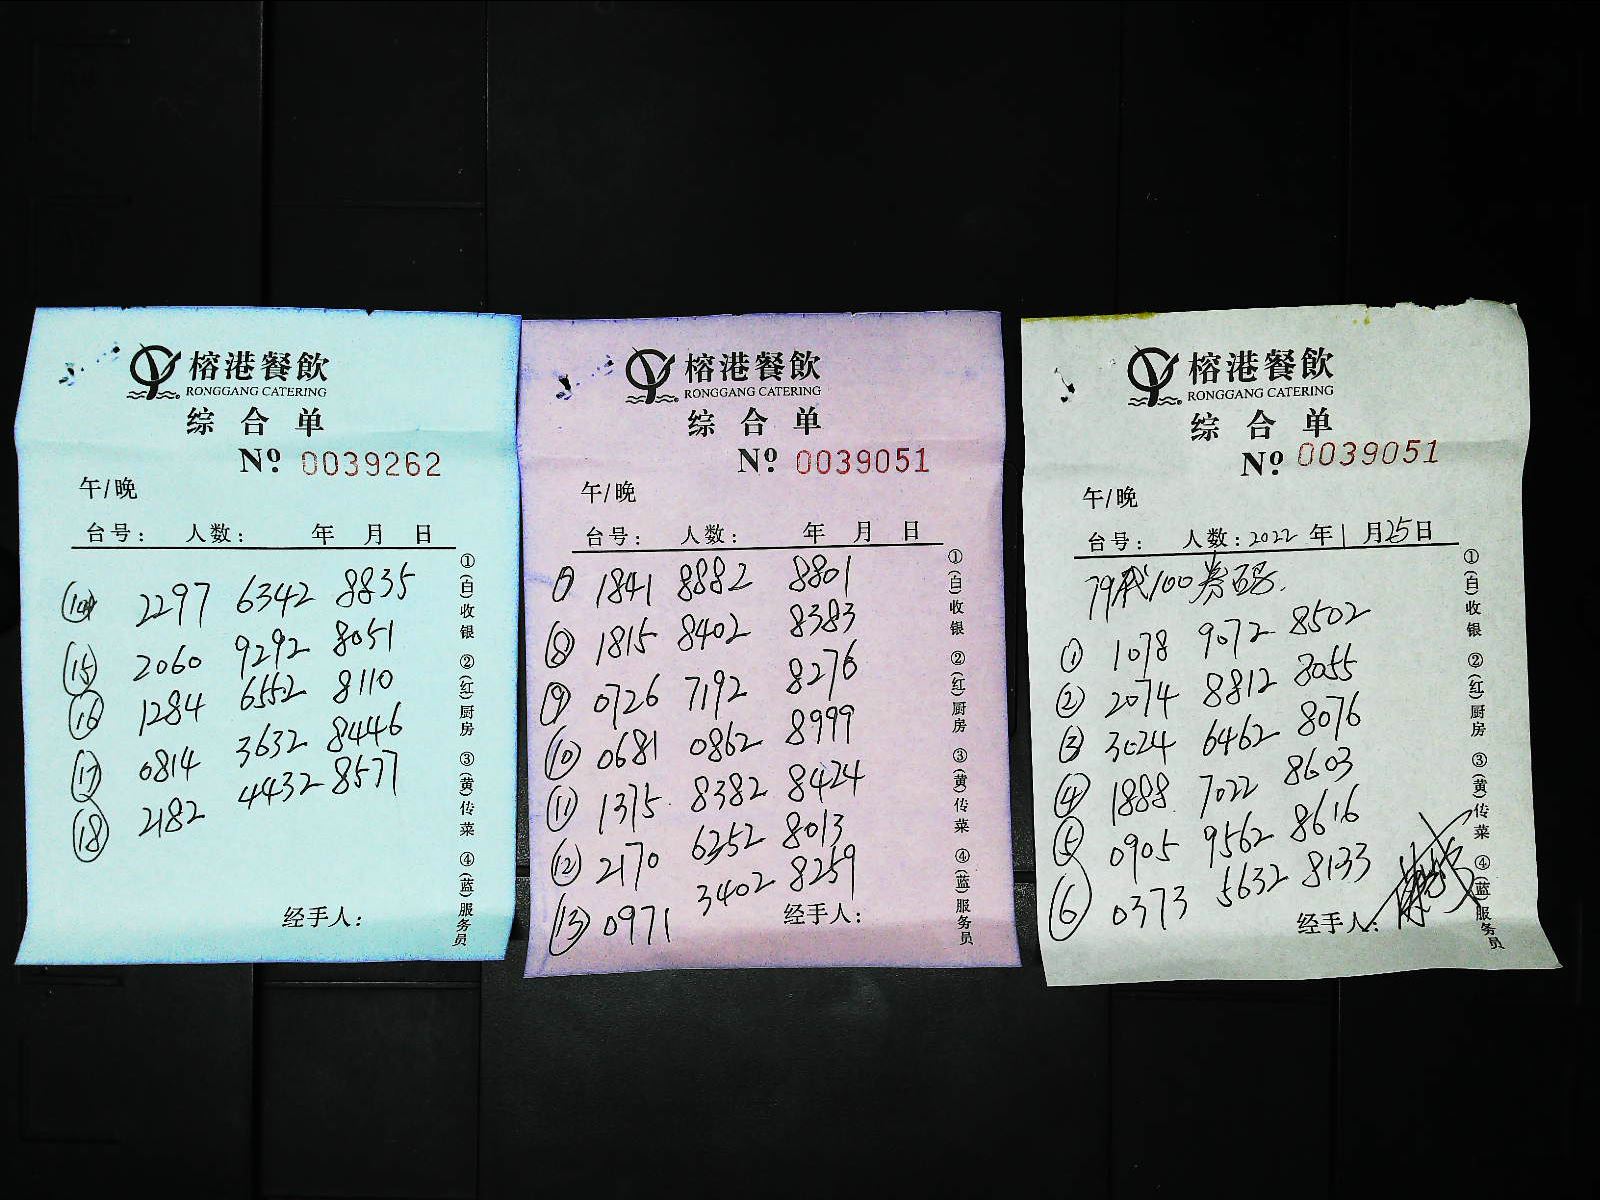 榕港餐飲
RONGGANG CATERING
综合单
Nº. 0039262
午/晚
台号: 人数: 年 月 日
2297 6342 8835
⑮ 2060 9292 8051
⑯ 1284 6552 8110
⑰ 0814 3632 8446
⑱ 2182 4432 8577
经手人:
①(白)收银 ②(红)厨房 ③(黄)传菜 ④(蓝)服务员
榕港餐飲
RONGGANG CATERING
综合单
Nº. 0039051
午/晚
台号: 人数: 年 月 日
⑦ 1841 8882 8801
⑧ 1815 8402 8383
⑨ 0726 7192 8276
⑩ 0681 0862 8999
⑪ 1375 8382 8424
⑫ 2170 6252 8013
⑬ 0971 3402 8259
经手人:
①(白)收银 ②(红)厨房 ③(黄)传菜 ④(蓝)服务员
榕港餐飲
RONGGANG CATERING
综合单
Nº. 0039051
午/晚
台号: 人数: 2022 年 1 月 25 日
79代100券码.
① 1078 9072 8502
② 2074 8812 8055
③ 3024 6462 8076
④ 1888 7022 8603
⑤ 0905 9562 8616
⑥ 0373 5632 8133
经手人:
①(白)收银 ②(红)厨房 ③(黄)传菜 ④(蓝)服务员